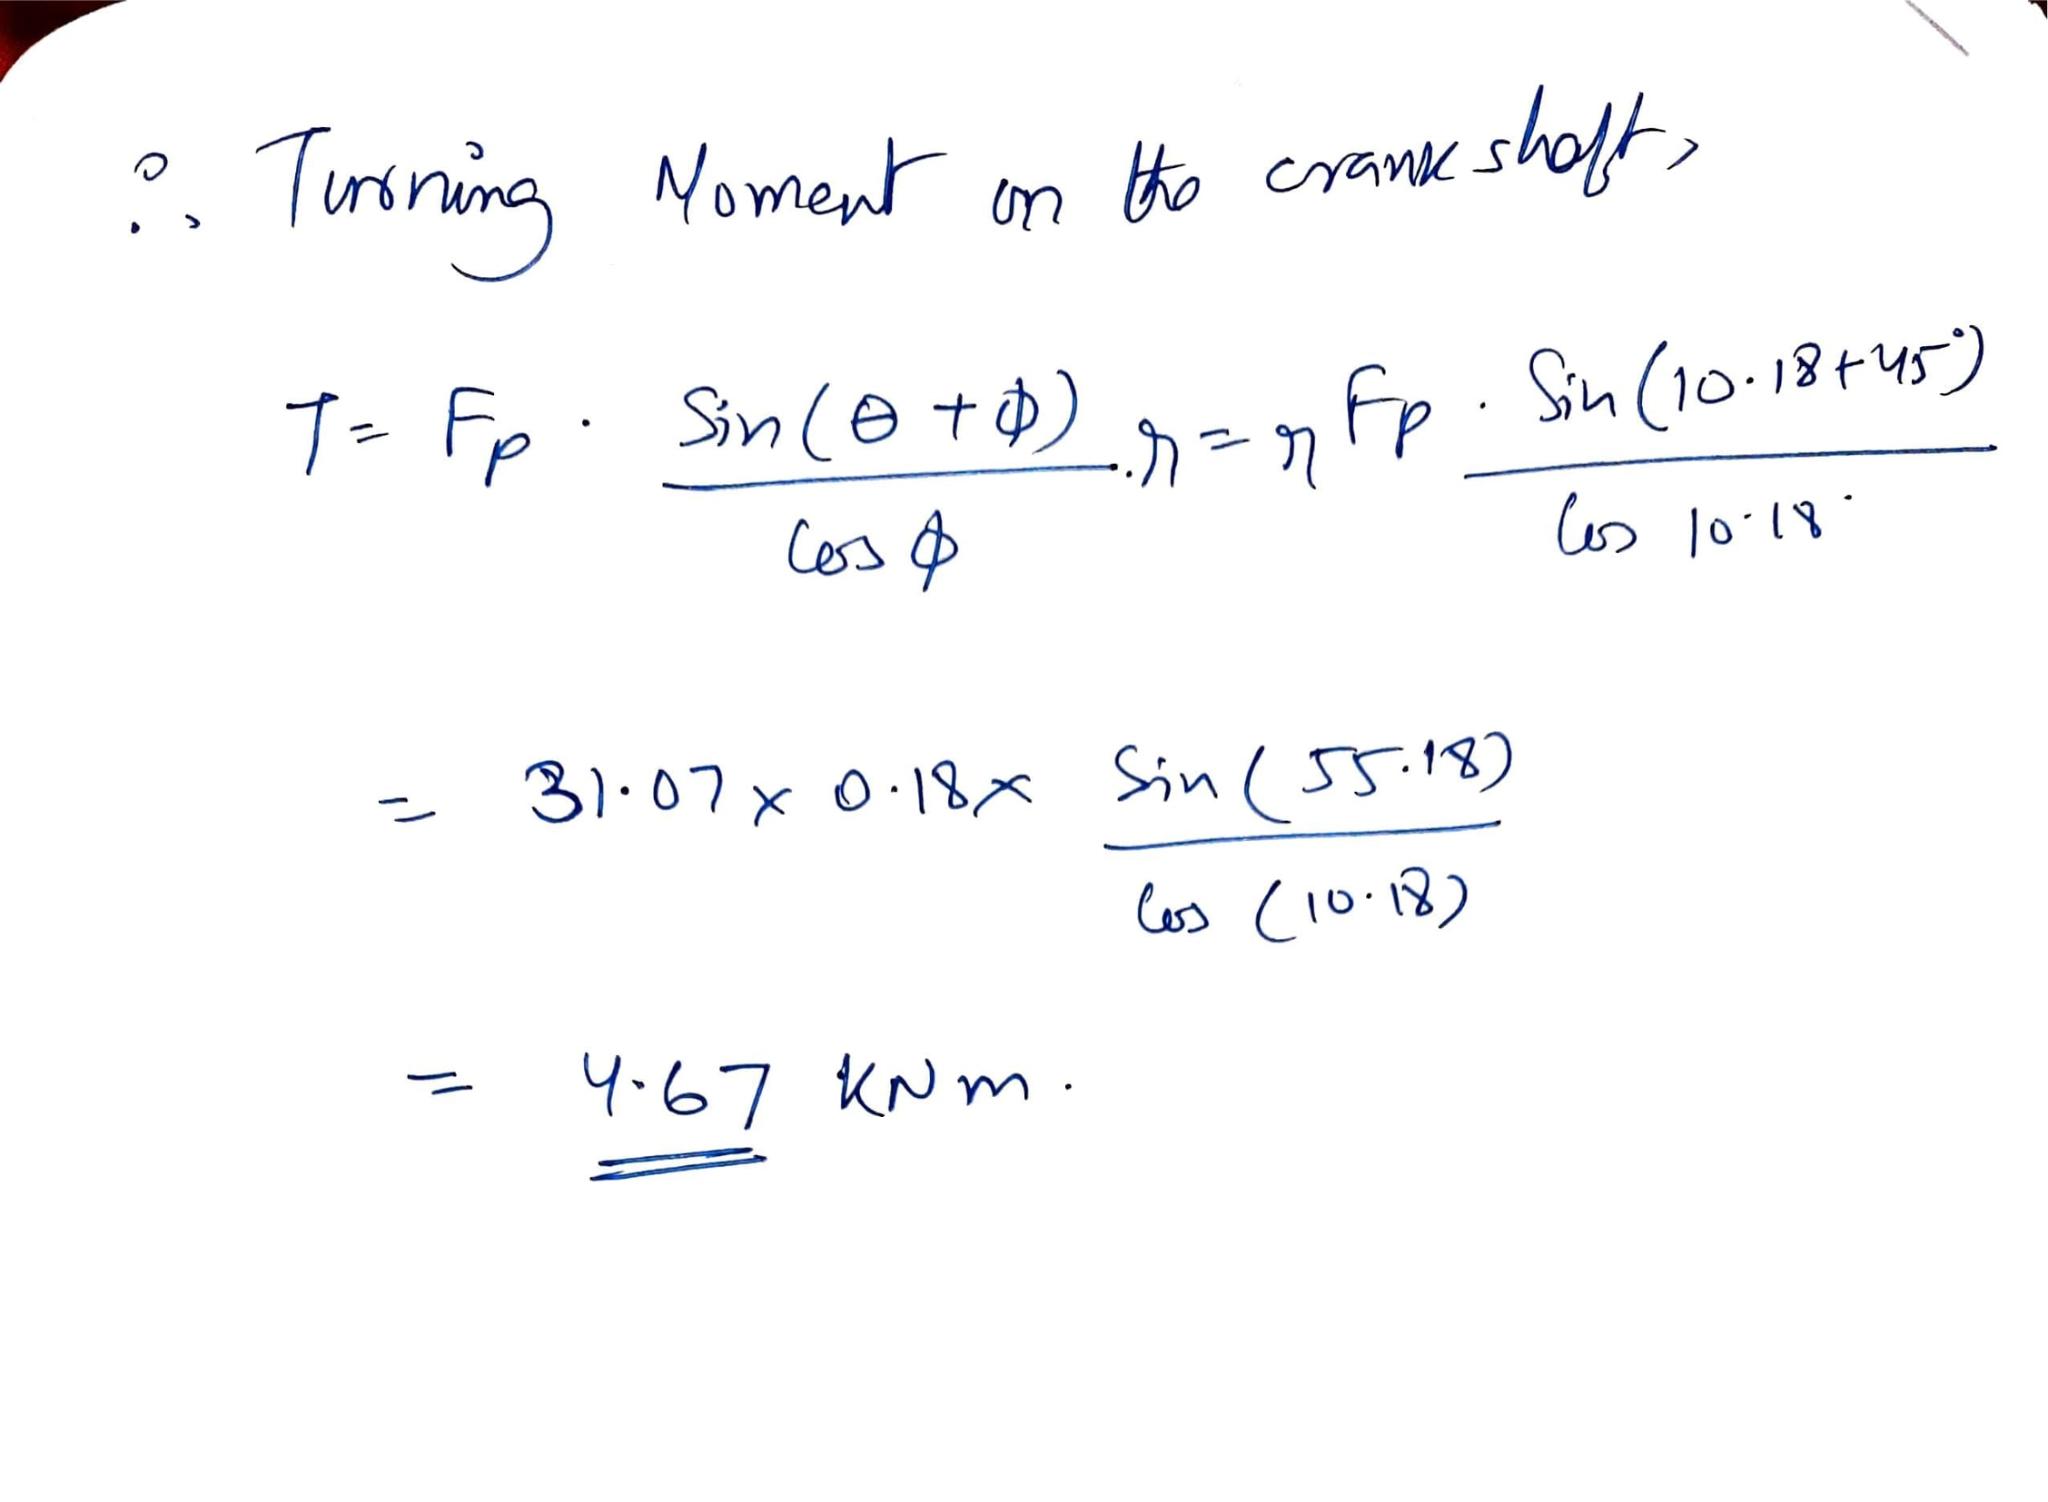 ∴ Turning Moment on the crank shaft,
T = Fp . Sin(θ+φ) / Cos φ . r = r Fp . Sin(10.18+45°) / Cos 10.18°
= 31.07 x 0.18 x Sin(55.18) / Cos (10.18)
= 4.67 KNm.